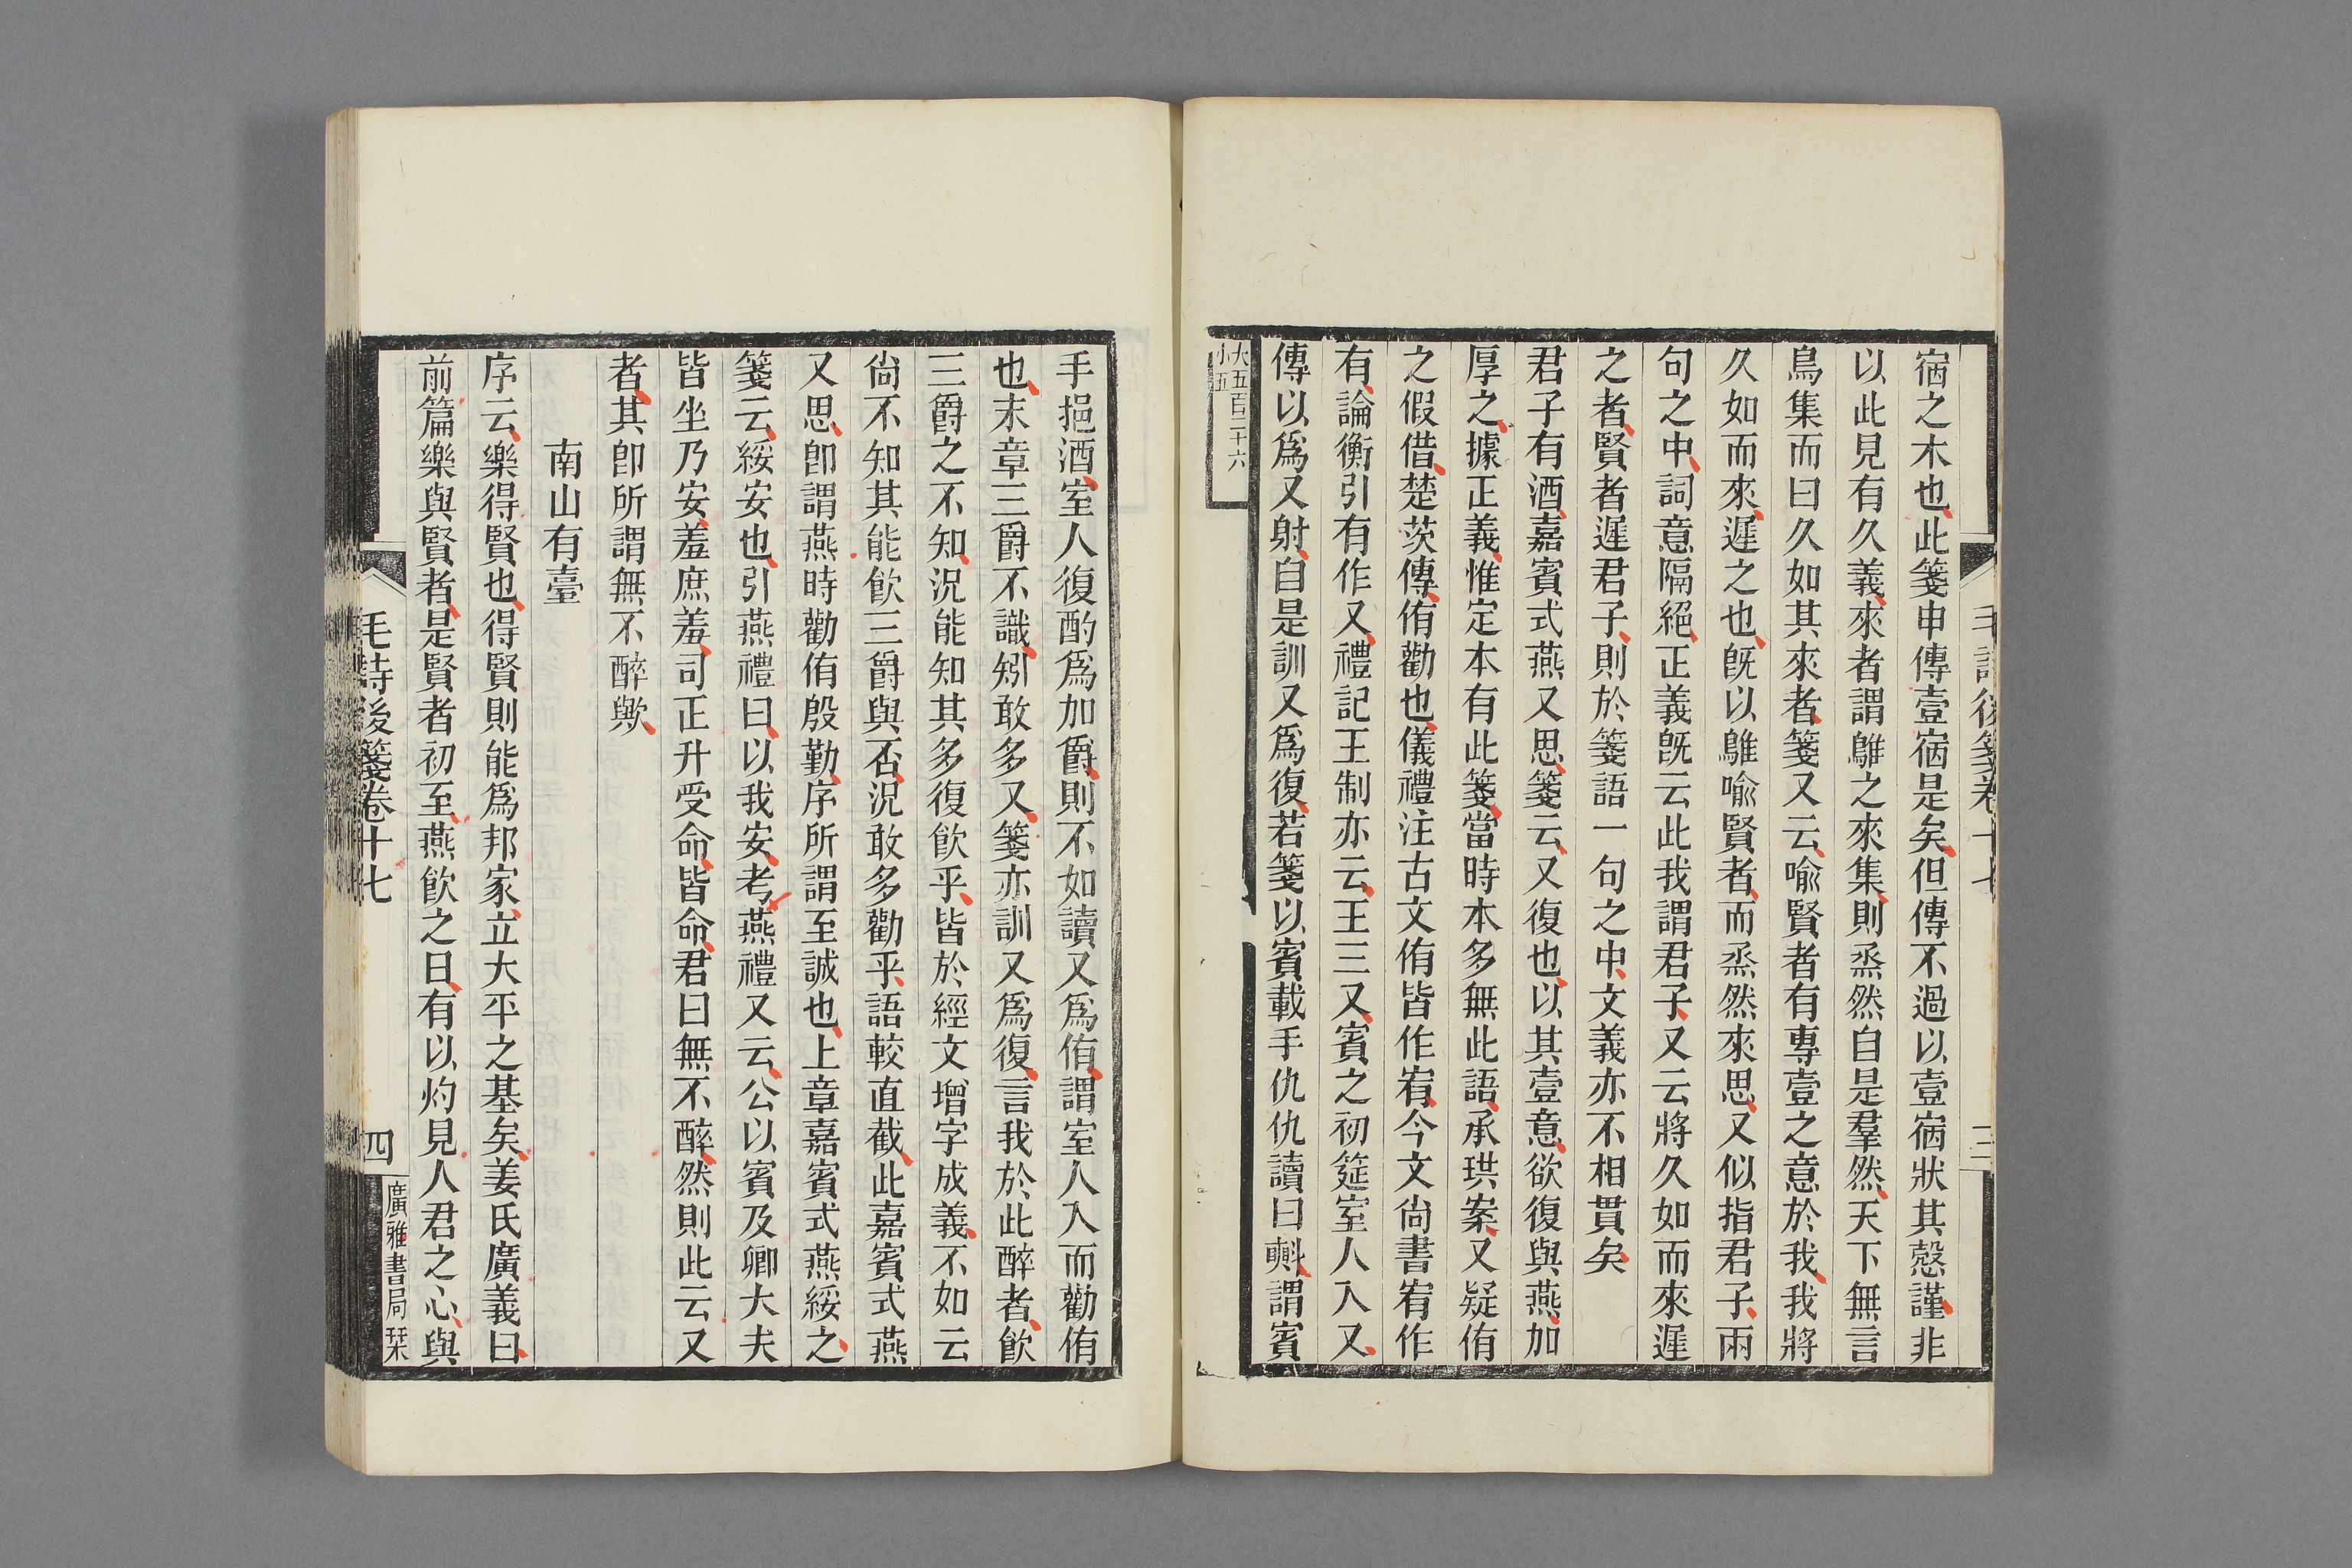 毛詩後箋卷十七
三
宿之木也此箋申傳壹宿是矣但傳不過以壹宿狀其愨謹非
以此見有久義來者謂鵻之來集則烝然自是羣然天下無言
鳥集而曰久如其來者箋又云喻賢者有專壹之意於我我將
久如而來遲之也旣以鵻喻賢者而烝然來思又似指君子兩
句之中詞意隔絕正義旣云此我謂君子又云將久如而來遲
之者賢者遲君子則於箋語一句之中文義亦不相貫矣
君子有酒嘉賓式燕又思箋云又復也以其壹意欲復與燕加
厚之據正義惟定本有此箋當時本多無此語承珙案又疑侑
之假借楚茨傳侑勸也儀禮注古文侑皆作宥今文尙書宥作
有論衡引有作又禮記王制亦云王三又賓之初筵室人入又
傳以爲又射自是訓又爲復若箋以賓載手仇仇讀曰㪺謂賓
大五百二十六
小五
手挹酒室人復酌爲加爵則不如讀又爲侑謂室人入而勸侑
也末章三爵不識矧敢多又箋亦訓又爲復言我於此醉者飮
三爵之不知況能知其多復飮乎皆於經文增字成義不如云
尙不知其能飮三爵與否況敢多勸乎語較直截此嘉賓式燕
又思卽謂燕時勸侑殷勤序所謂至誠也上章嘉賓式燕綏之
箋云綏安也引燕禮曰以我安考燕禮又云公以賓及卿大夫
皆坐乃安羞庶羞司正升受命皆命君曰無不醉然則此云又
者其卽所謂無不醉歟
南山有臺
序云樂得賢也得賢則能爲邦家立大平之基矣姜氏廣義曰
前篇樂與賢者是賢者初至燕飮之日有以灼見人君之心與
毛詩後箋卷十七
四
廣雅書局栞